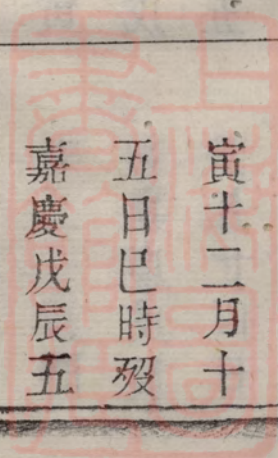 寅十二月十
五日巳時歿
嘉慶戊辰五